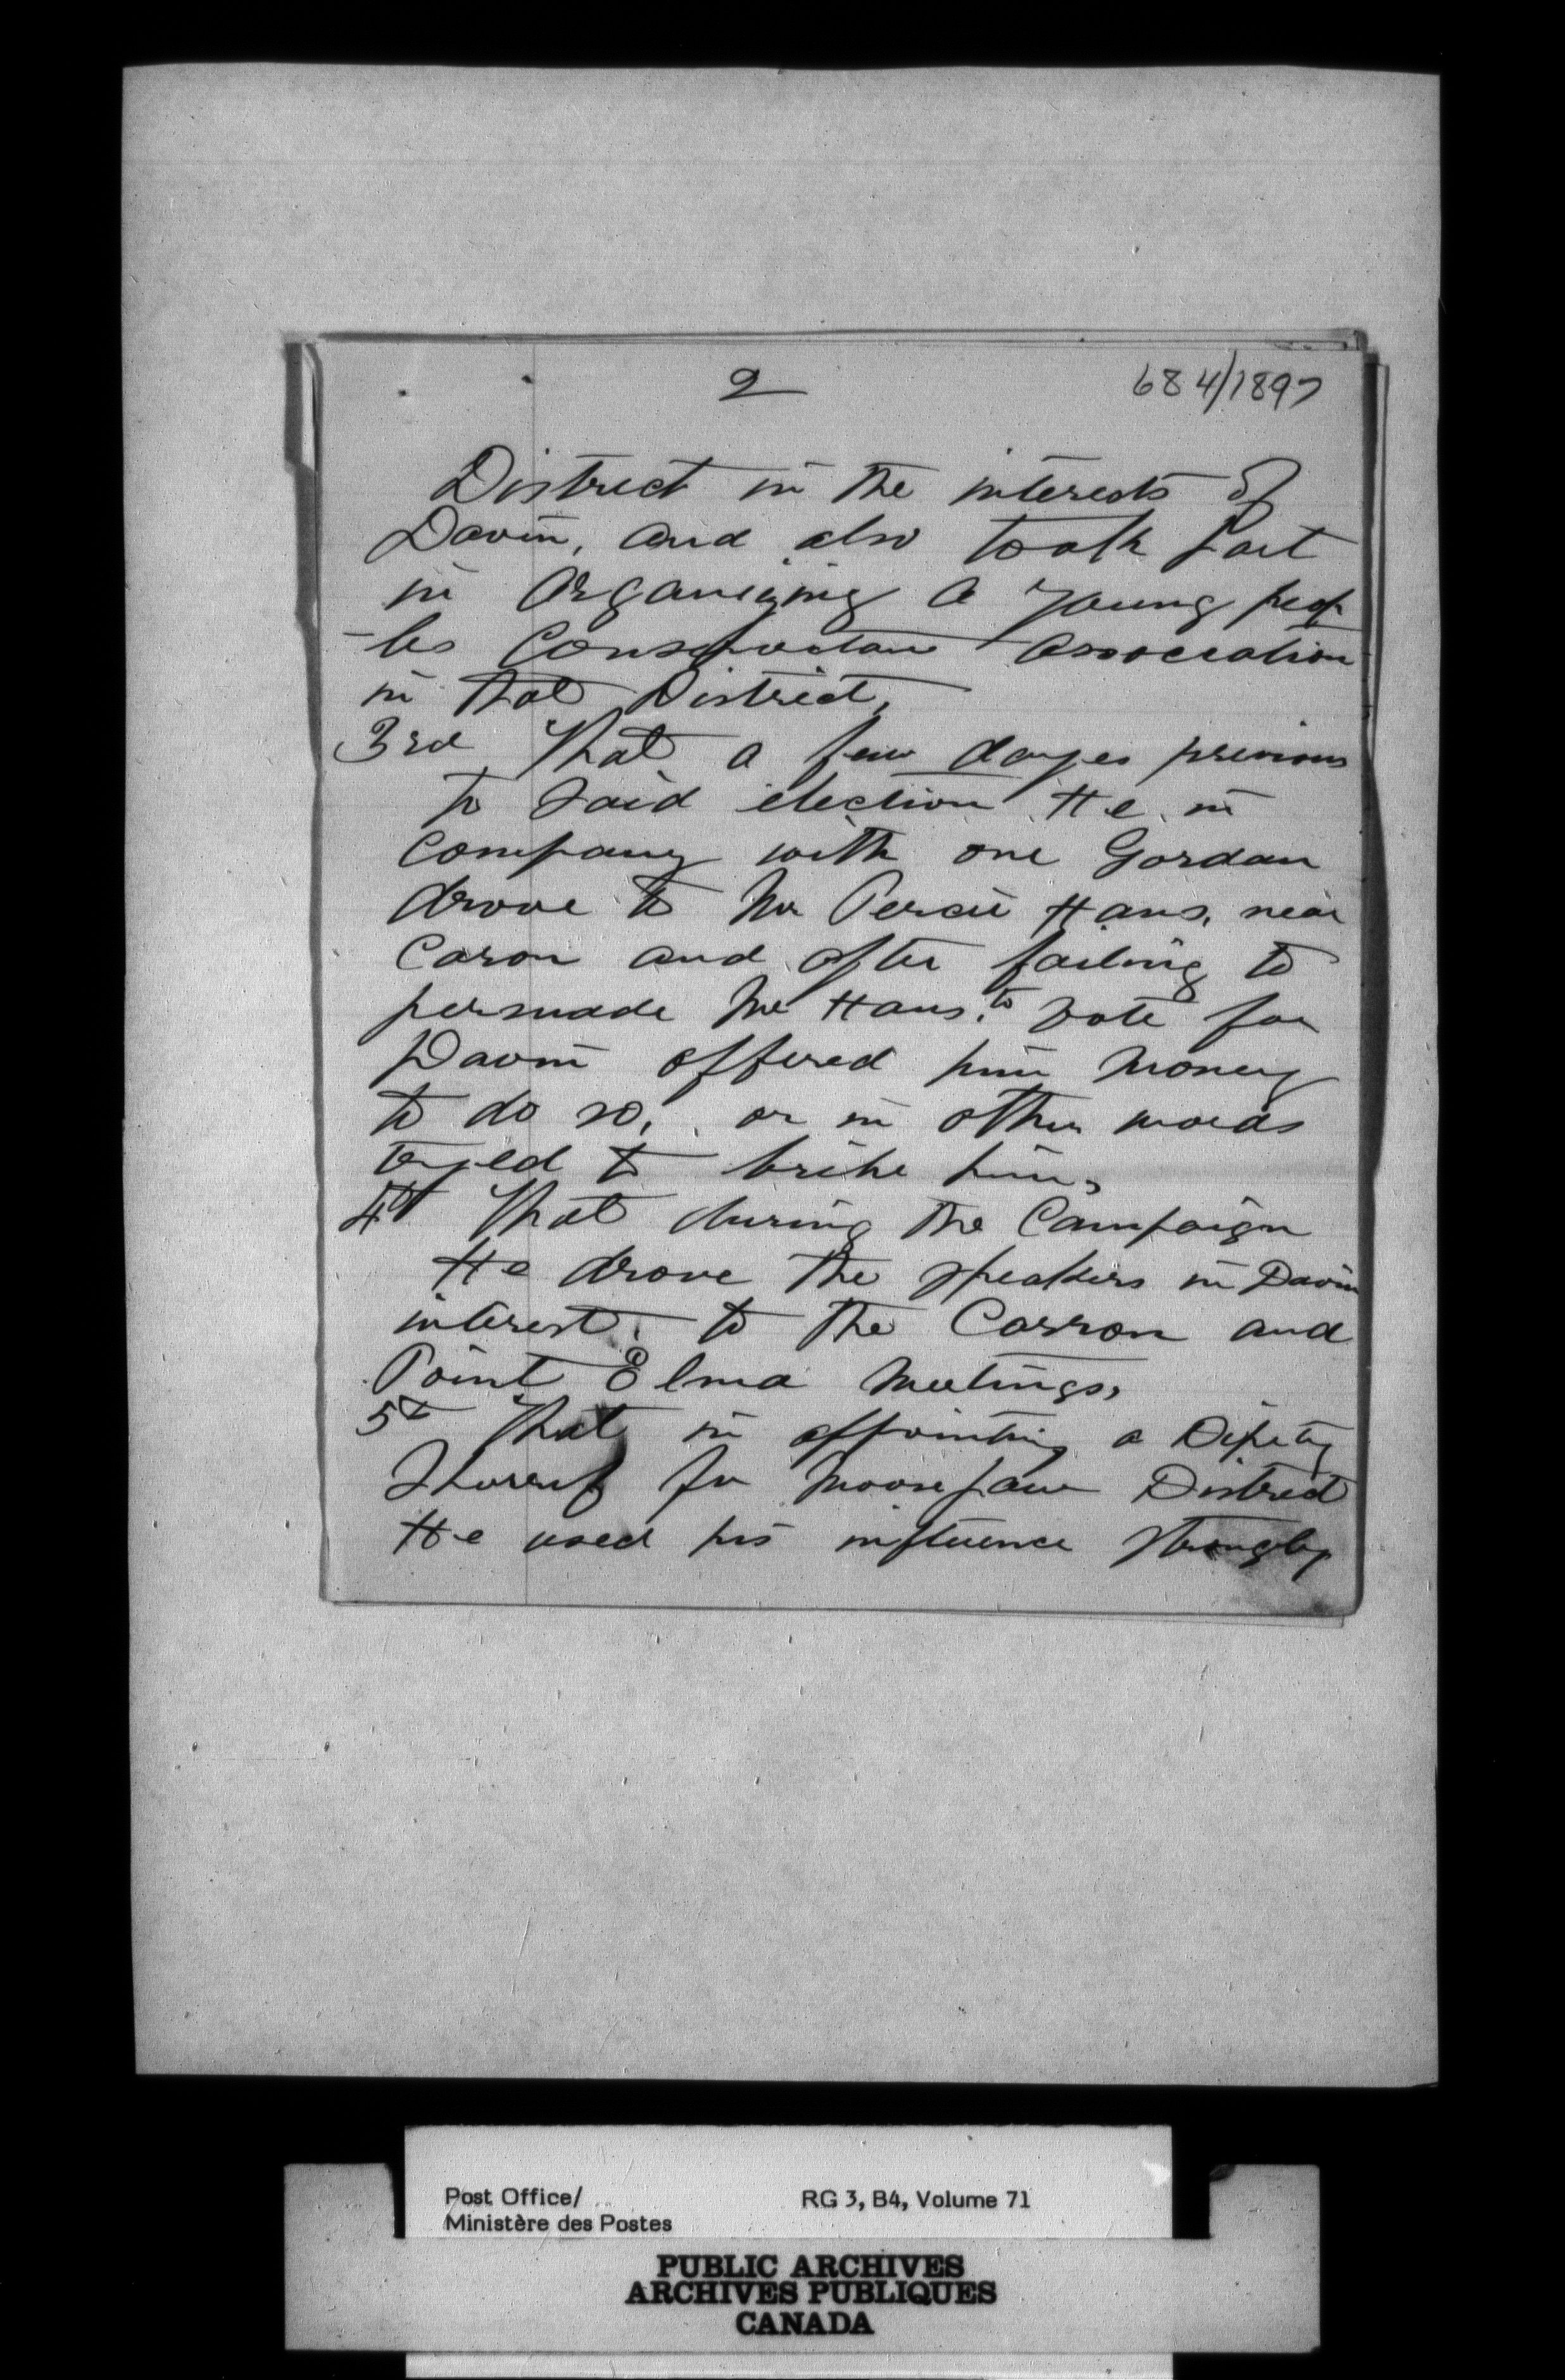 2
684/1897
District in the interests of
Davin, and also took part
in Organizing a young peop
-les Conservative Association
in that District,
3rd That a few days previous
to said election He in
Company with one Gordan
drove to Mr Percie Haus, near
Caron and after failing to
persuade Mr Haus, to vote for
Davin offered him money
to do so, or in other words
tryed to bribe him,
4th That during the Campaign
He drove the speakers in Davin
interest, to the Carron and
Point Elma Meetings,
5th That in appointing a Deputy
for Moosejaw District
He used his influence strongly
Post Office/
Ministère des Postes
RG 3, B4, Volume 71
PUBLIC ARCHIVES
ARCHIVES PUBLIQUES
CANADA